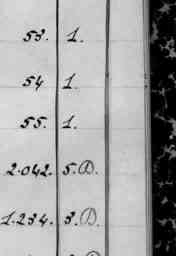 53. 1.
54 1.
55. 1.
2.042. 5.D.
1.234. 3.D.